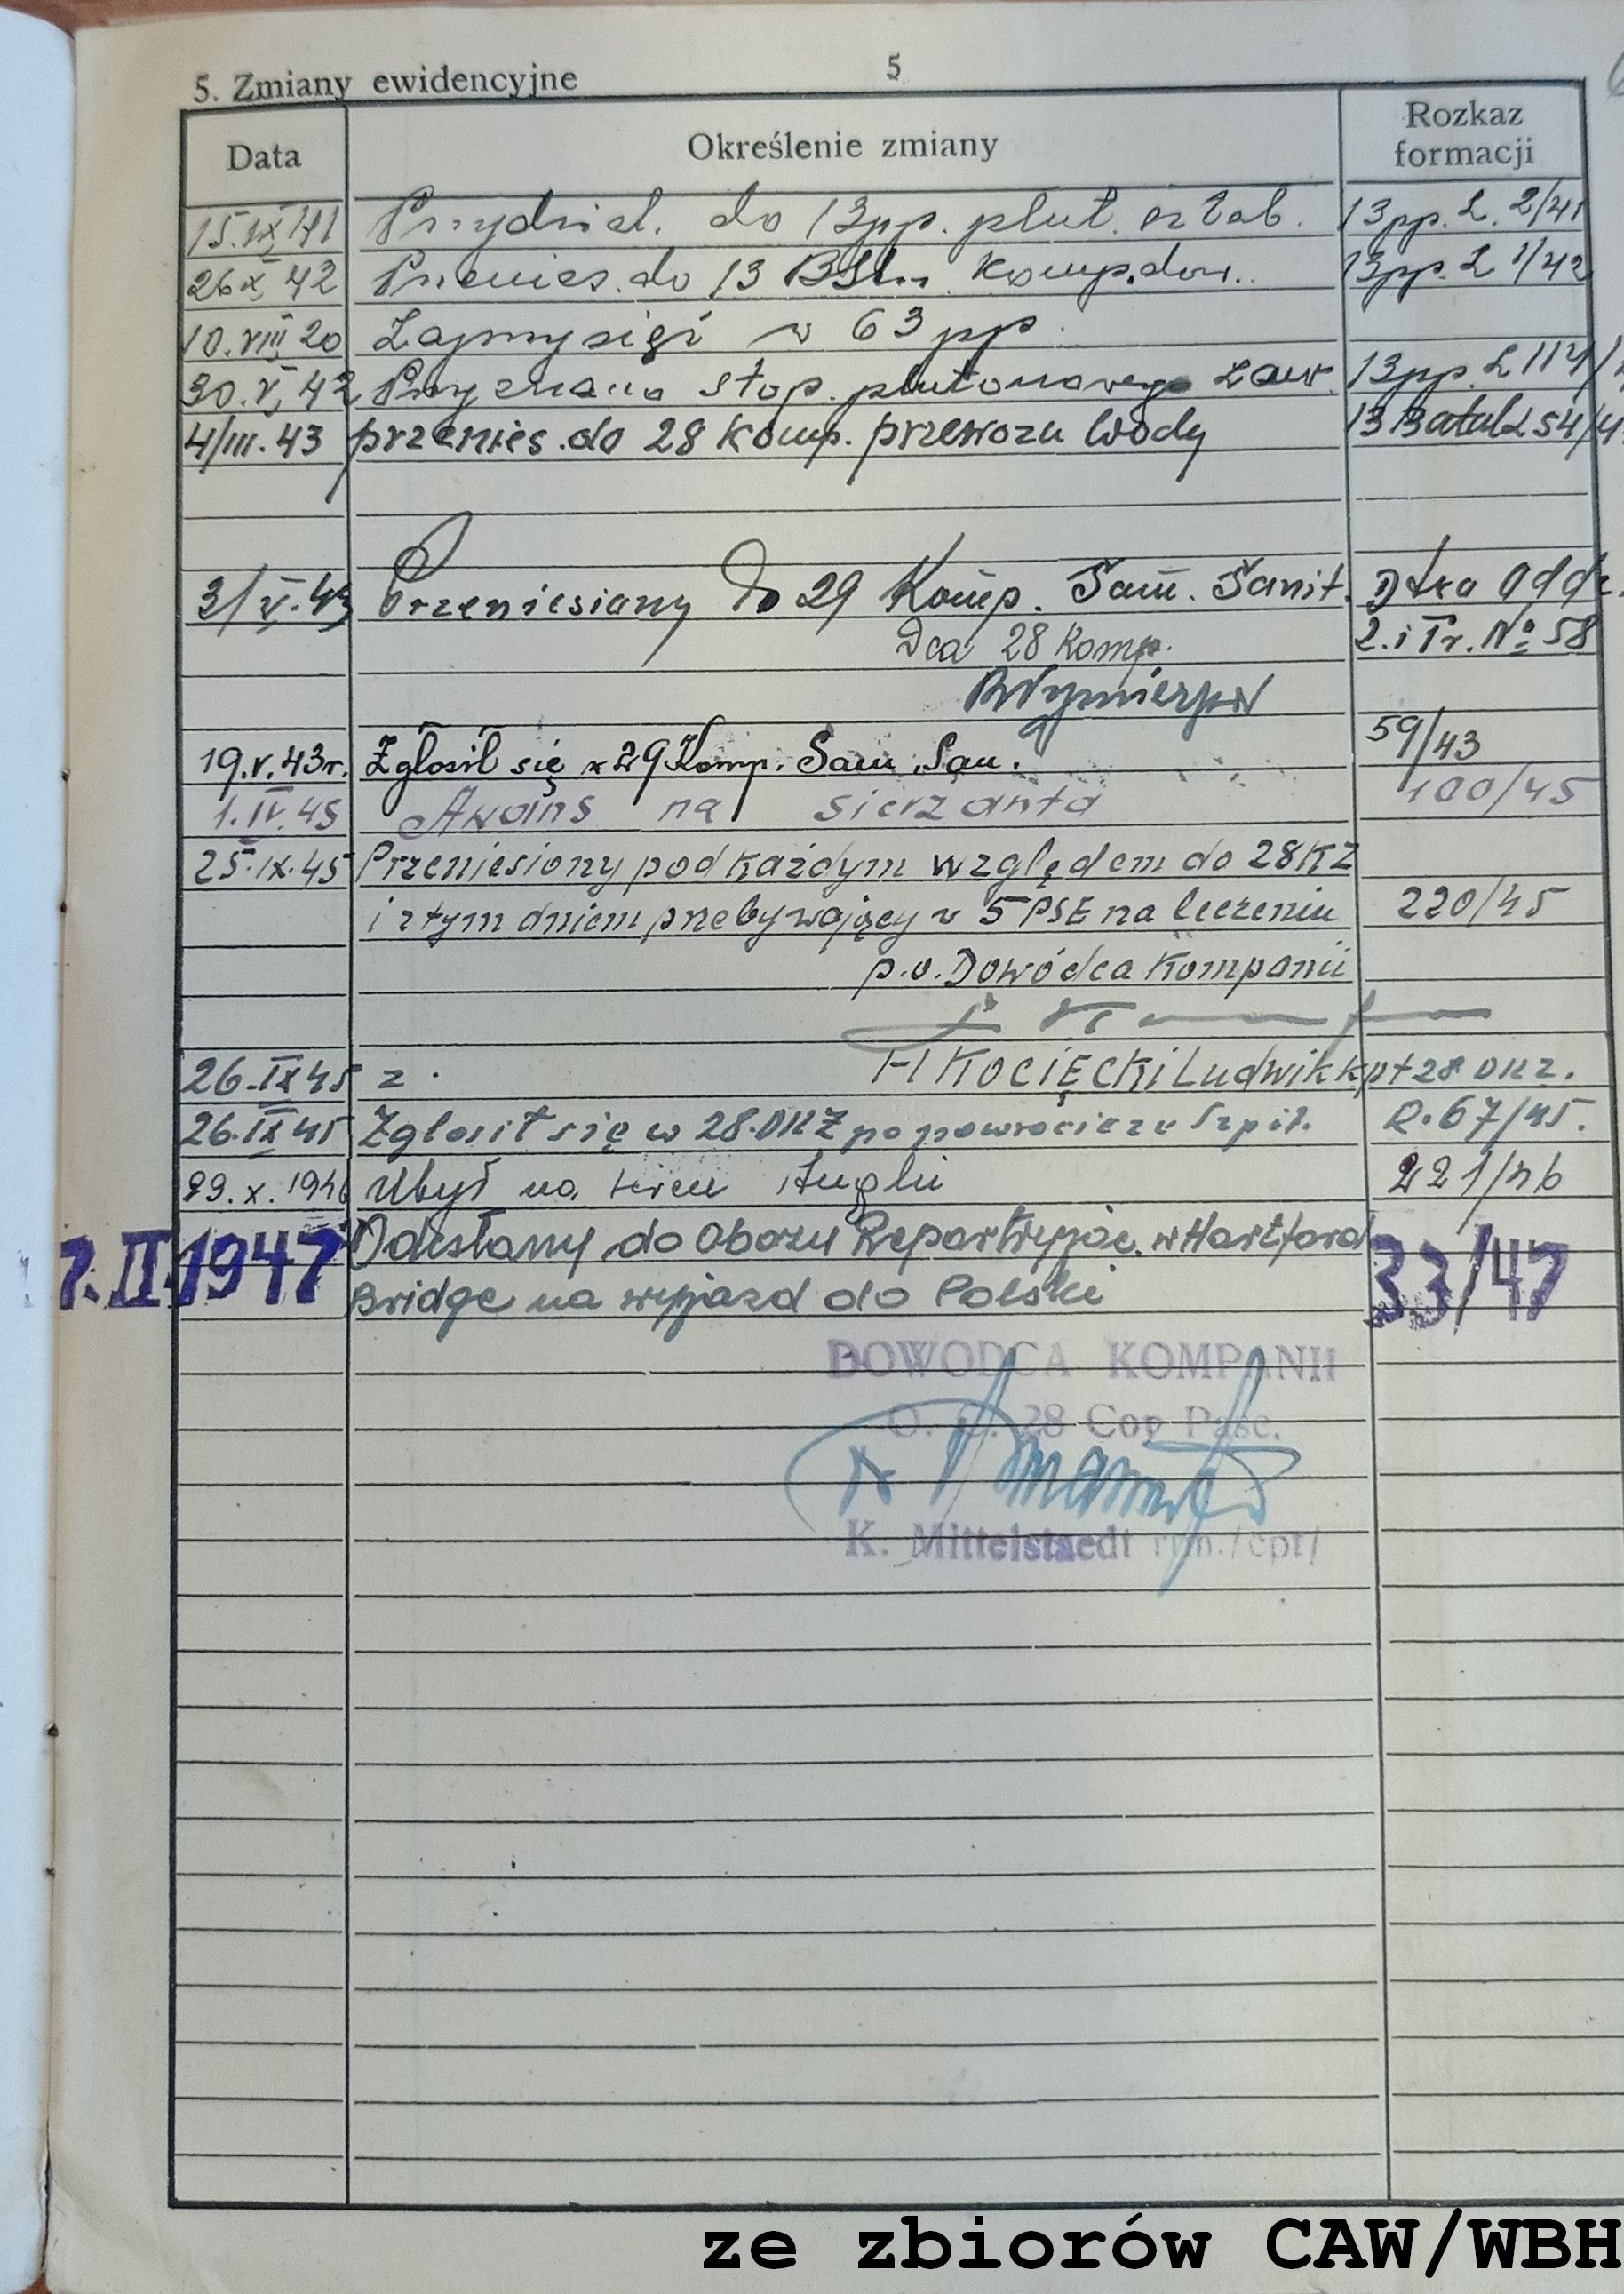 5. Zmiany ewidencyjne 5
Data Określenie zmiany Rozkaz formacji
15.IX.41 Przydział. do 13pp. plut. sztab. 13pp. L. 2/41
26 X 42 Przenies. do 13 komp. dow. 13pp. L 1/42
10.VIII 20 w 63 pp.
30.V. 42 Przyznano stop. plutonowego zaw. 13pp. L 114/
4/III.43 przenies. do 28 komp. przewozu wody 13 Batal L 54/4
3/V.43 Przeniesiony do 29 Komp. Sam. Sanit. Dtwa Oddz.
Dca 28 Komp. Z. i Tr. № 58
19.V.43r. Zgłosił się z 29 Komp. Sam. San. 59/43
1.IV.45 Awans na sierżanta 100/45
25.IX.45 Przeniesiony pod każdym względem do 28 KZ
i z tym dniem przebywający w 5 PSE na leczeniu 220/45
p.o. Dowódca Kompanii
26.IX 45 z. Kocięcki Ludwik kpt 28 OKZ.
26.IX 45 Zgłosił się w 28.OKZ po powrocie ze Szpit. R. 67/45.
29.X.1946 Ubył na teren Anglii 221/46
7.II.1947 Odesłany do Obozu Repartryjac. w Hartford 33/47
Bridge na wyjazd do Polski
DOWODCA KOMPANII
O. C. 28 Coy Pasc.
K. Mittelstaedt rtm./cpt/
ze zbiorów CAW/WBH